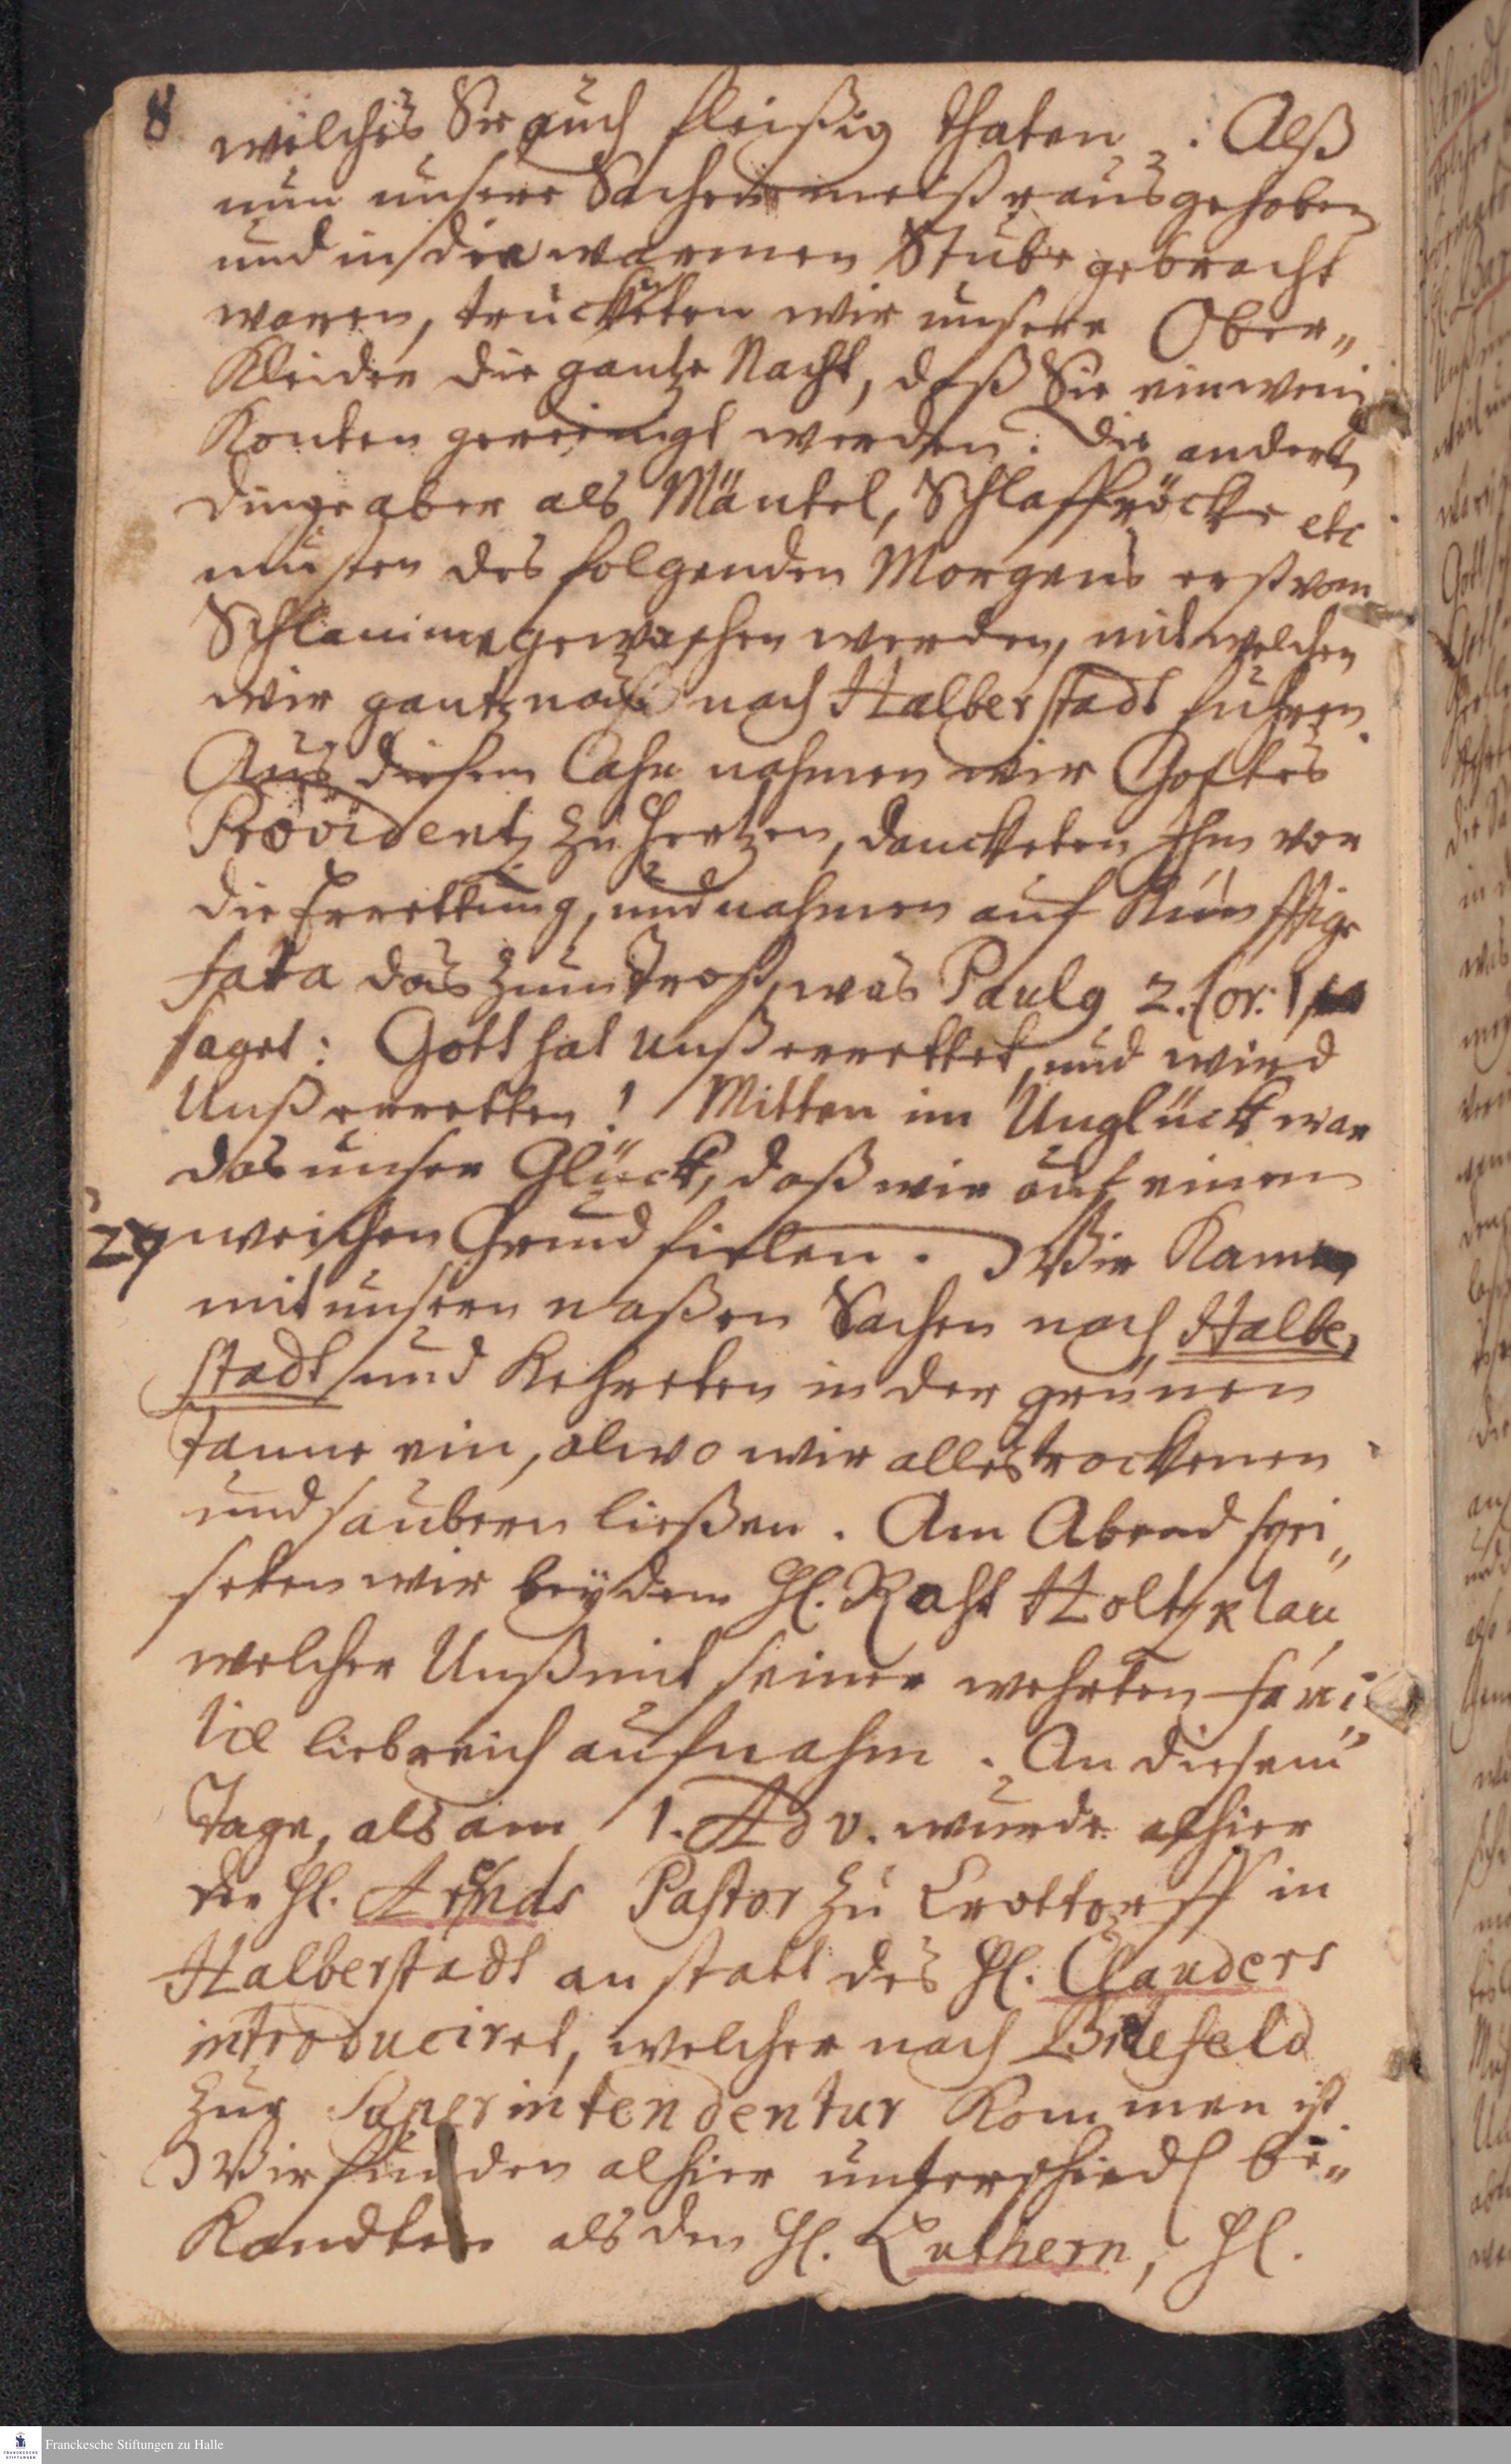 8
welches Sie auch fleißig thaten. Alß
nun unsere Sachen meist rausgehoben
und in die warmen Stube gebracht
waren, truckneten wir unsere Ober„
Kleider die gantze Nacht, daß Sie ein wenig
Konten gereinigt werden. Die andern
dinge aber als Mäntel, Schlaffröcke etc
musten des folgenden Morgens erst vom
Schlamm gewaschen werden, mit welchen
wir gantz naß nach Halberstadt fuhren.
Aus diesem Casu nahmen wir Gottes
Providentz zu Hertzen, danckten Ihm vor
die Errettung, und nahmen auf Künfftige
fata das zum Trost, was Paulq 2. Cor: 1,10
saget: Gott hat Unß errettet, und wird
Unß erretten! Mitten im Unglück war
das unser Glück, daß wir auf einen
29 weichen Grund fielen. Wir Kamen
mit unsern naßen Sachen nach Halber„
stadt und Kehreten in der grünen
Tanne ein, alwo wir alles trockenen
und saubern ließen. Am Abend spei„
seten wir bey dem Hl. Raht Holtzklau
welcher Unß mit seiner wehrten fami
lie liebreich aufnahm. An diesem
Tage, als am 1. Adv. wurde alhier
der Hl. Arends Pastor zu Crottorff in
Halberstadt an statt des Hl. Clauders
introduciret, welcher nach Bilefeld
zur Superintendentur Kommen ist.
Wir funden alhier unterschiedl Be„
Kandten als den Hl. Luthern, Hl.
Franckesche Stiftungen zu Halle